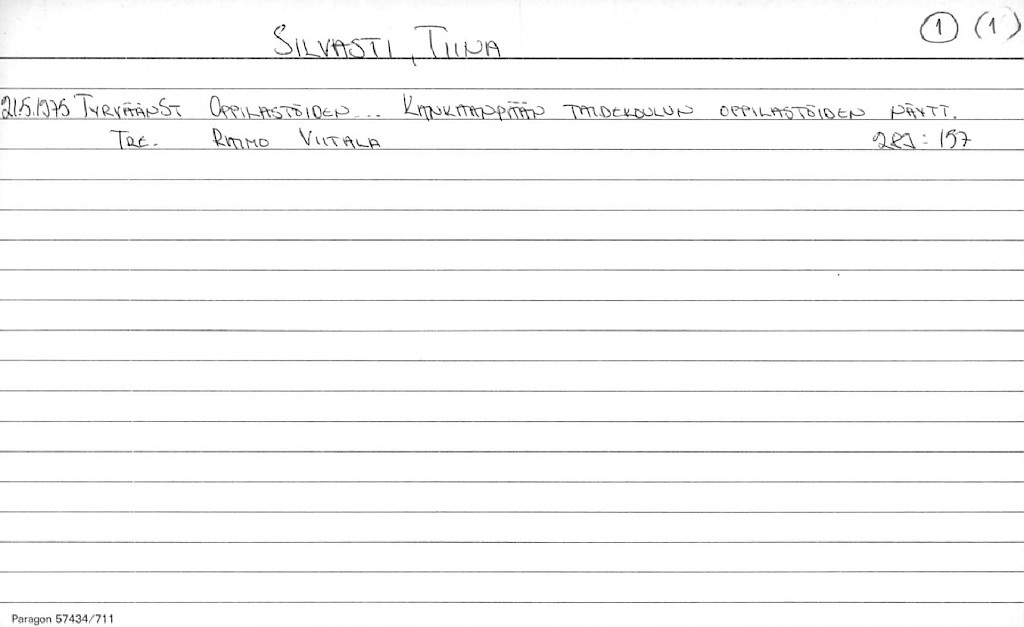 SILVASTI, TIINA
1 (1)
21.5.1975 TYRVÄÄNST OPPILASTÖIDEN... KANKAANPÄÄN TAIDEKOULUN OPPILASTÖIDEN NÄYTT.
TRE. RAIMO VIITALA 281: 157
Paragon 57434/711